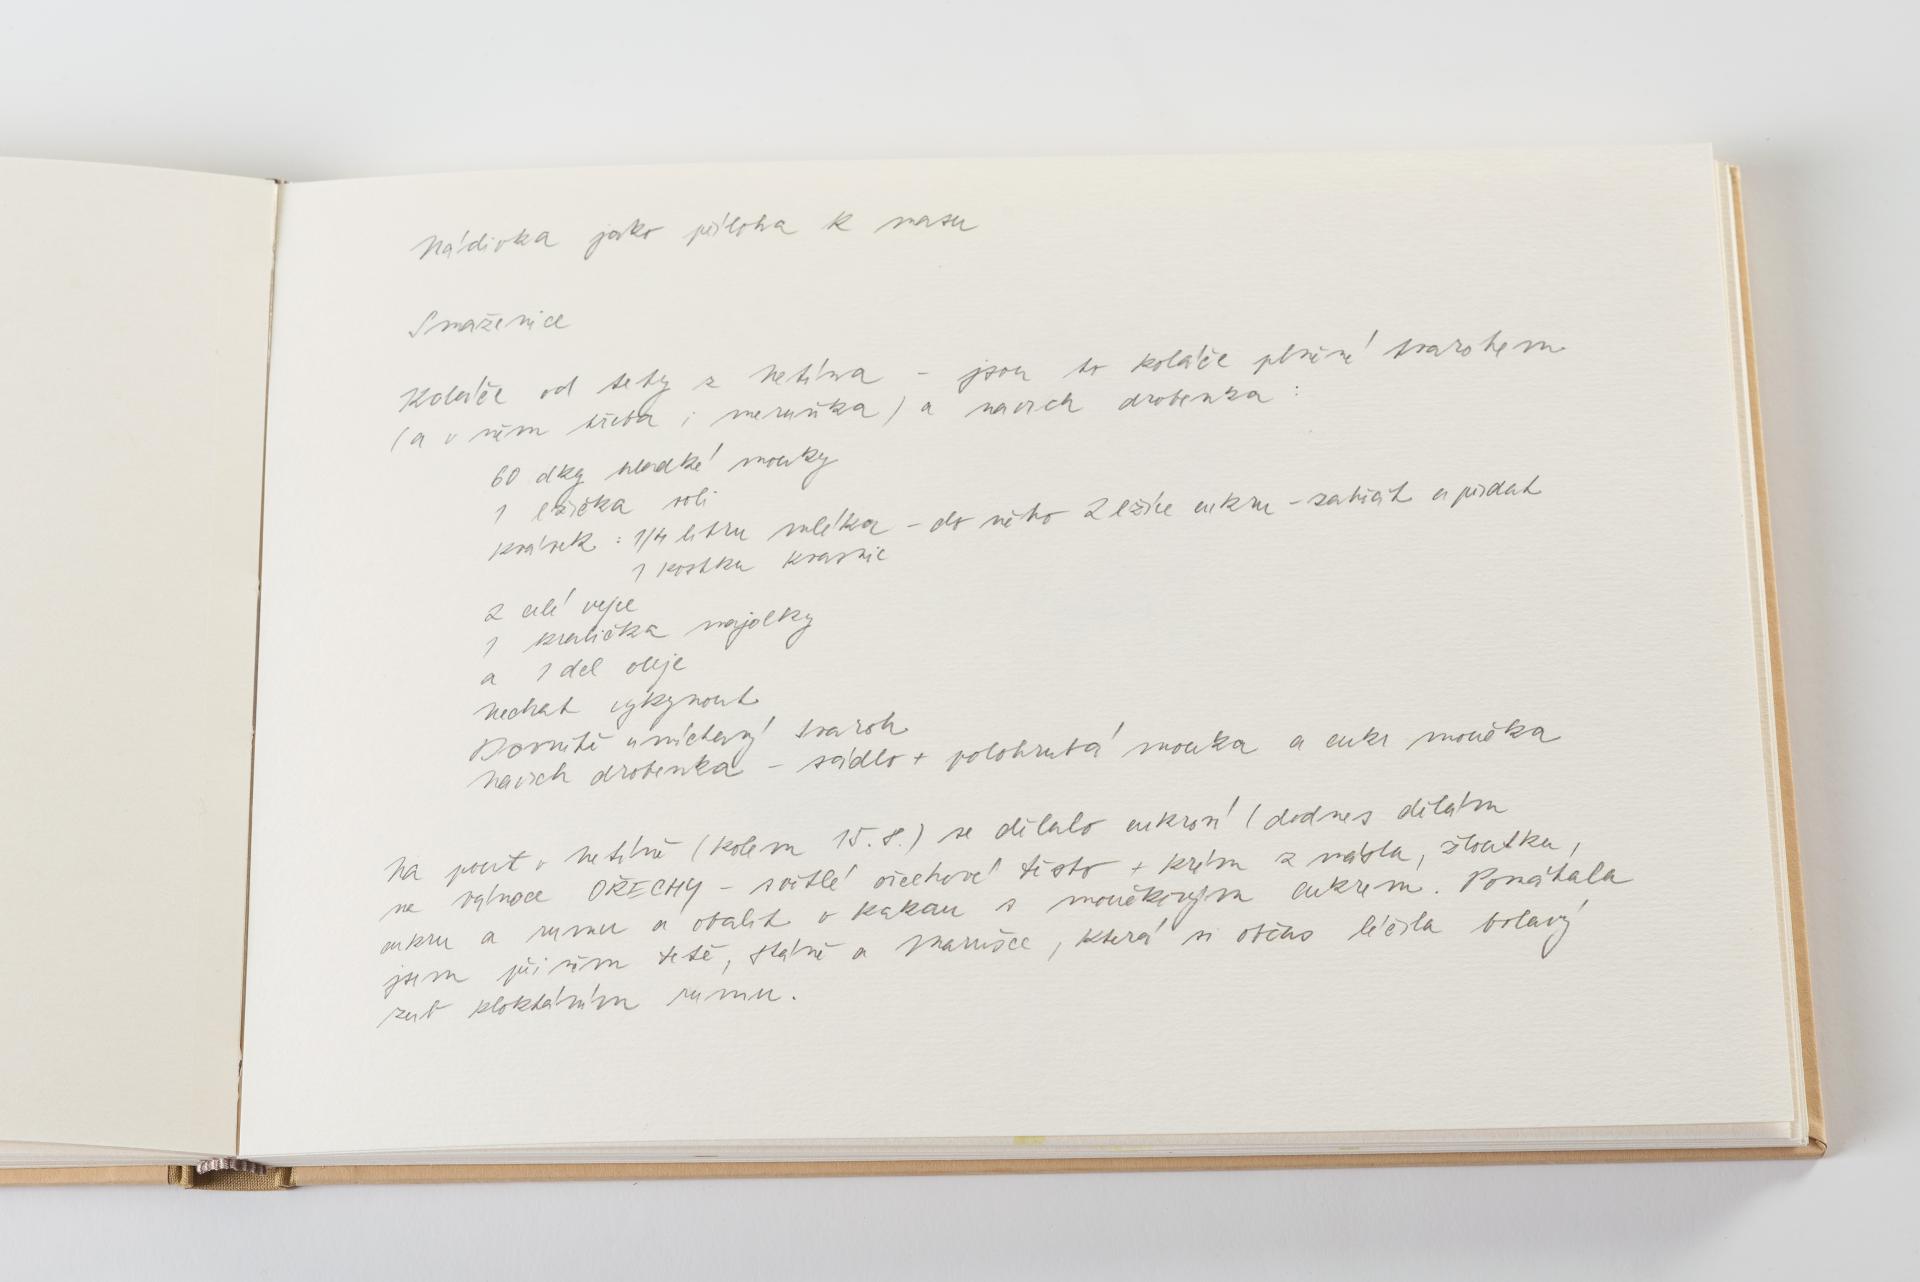 Nádivka jako příloha k masu
Smaženice
Koláče od tety z Netína – jsou to koláče plněné tvarohem
(a v něm třeba i meruňka) a navrch drobenka:
60 dkg hladké mouky
1 lžička soli
kvásek: 1/4 litru mléka – do něho 2 lžíce cukru – zahřát a přidat
1 kostku kvasnic
2 celé vejce
1 kralička majolky
a 1 dcl oleje
Nechat vykynout
Dovnitř umíchaný tvaroh
Navrch drobenka – sádlo + polohrubá mouka a cukr moučka
Na pouť v Netíně (kolem 15.8.) se dělalo cukroví (dodnes dělám
na vánoce OŘECHY – světlé ořechové těsto + krém z másla, žloutku,
cukru a rumu a obalit v kakau s moučkovým cukrem. Pomáhala
jsem při něm tetě, Háně a Marušce, která si občas léčila bolavý
zub kloktáním rumu.